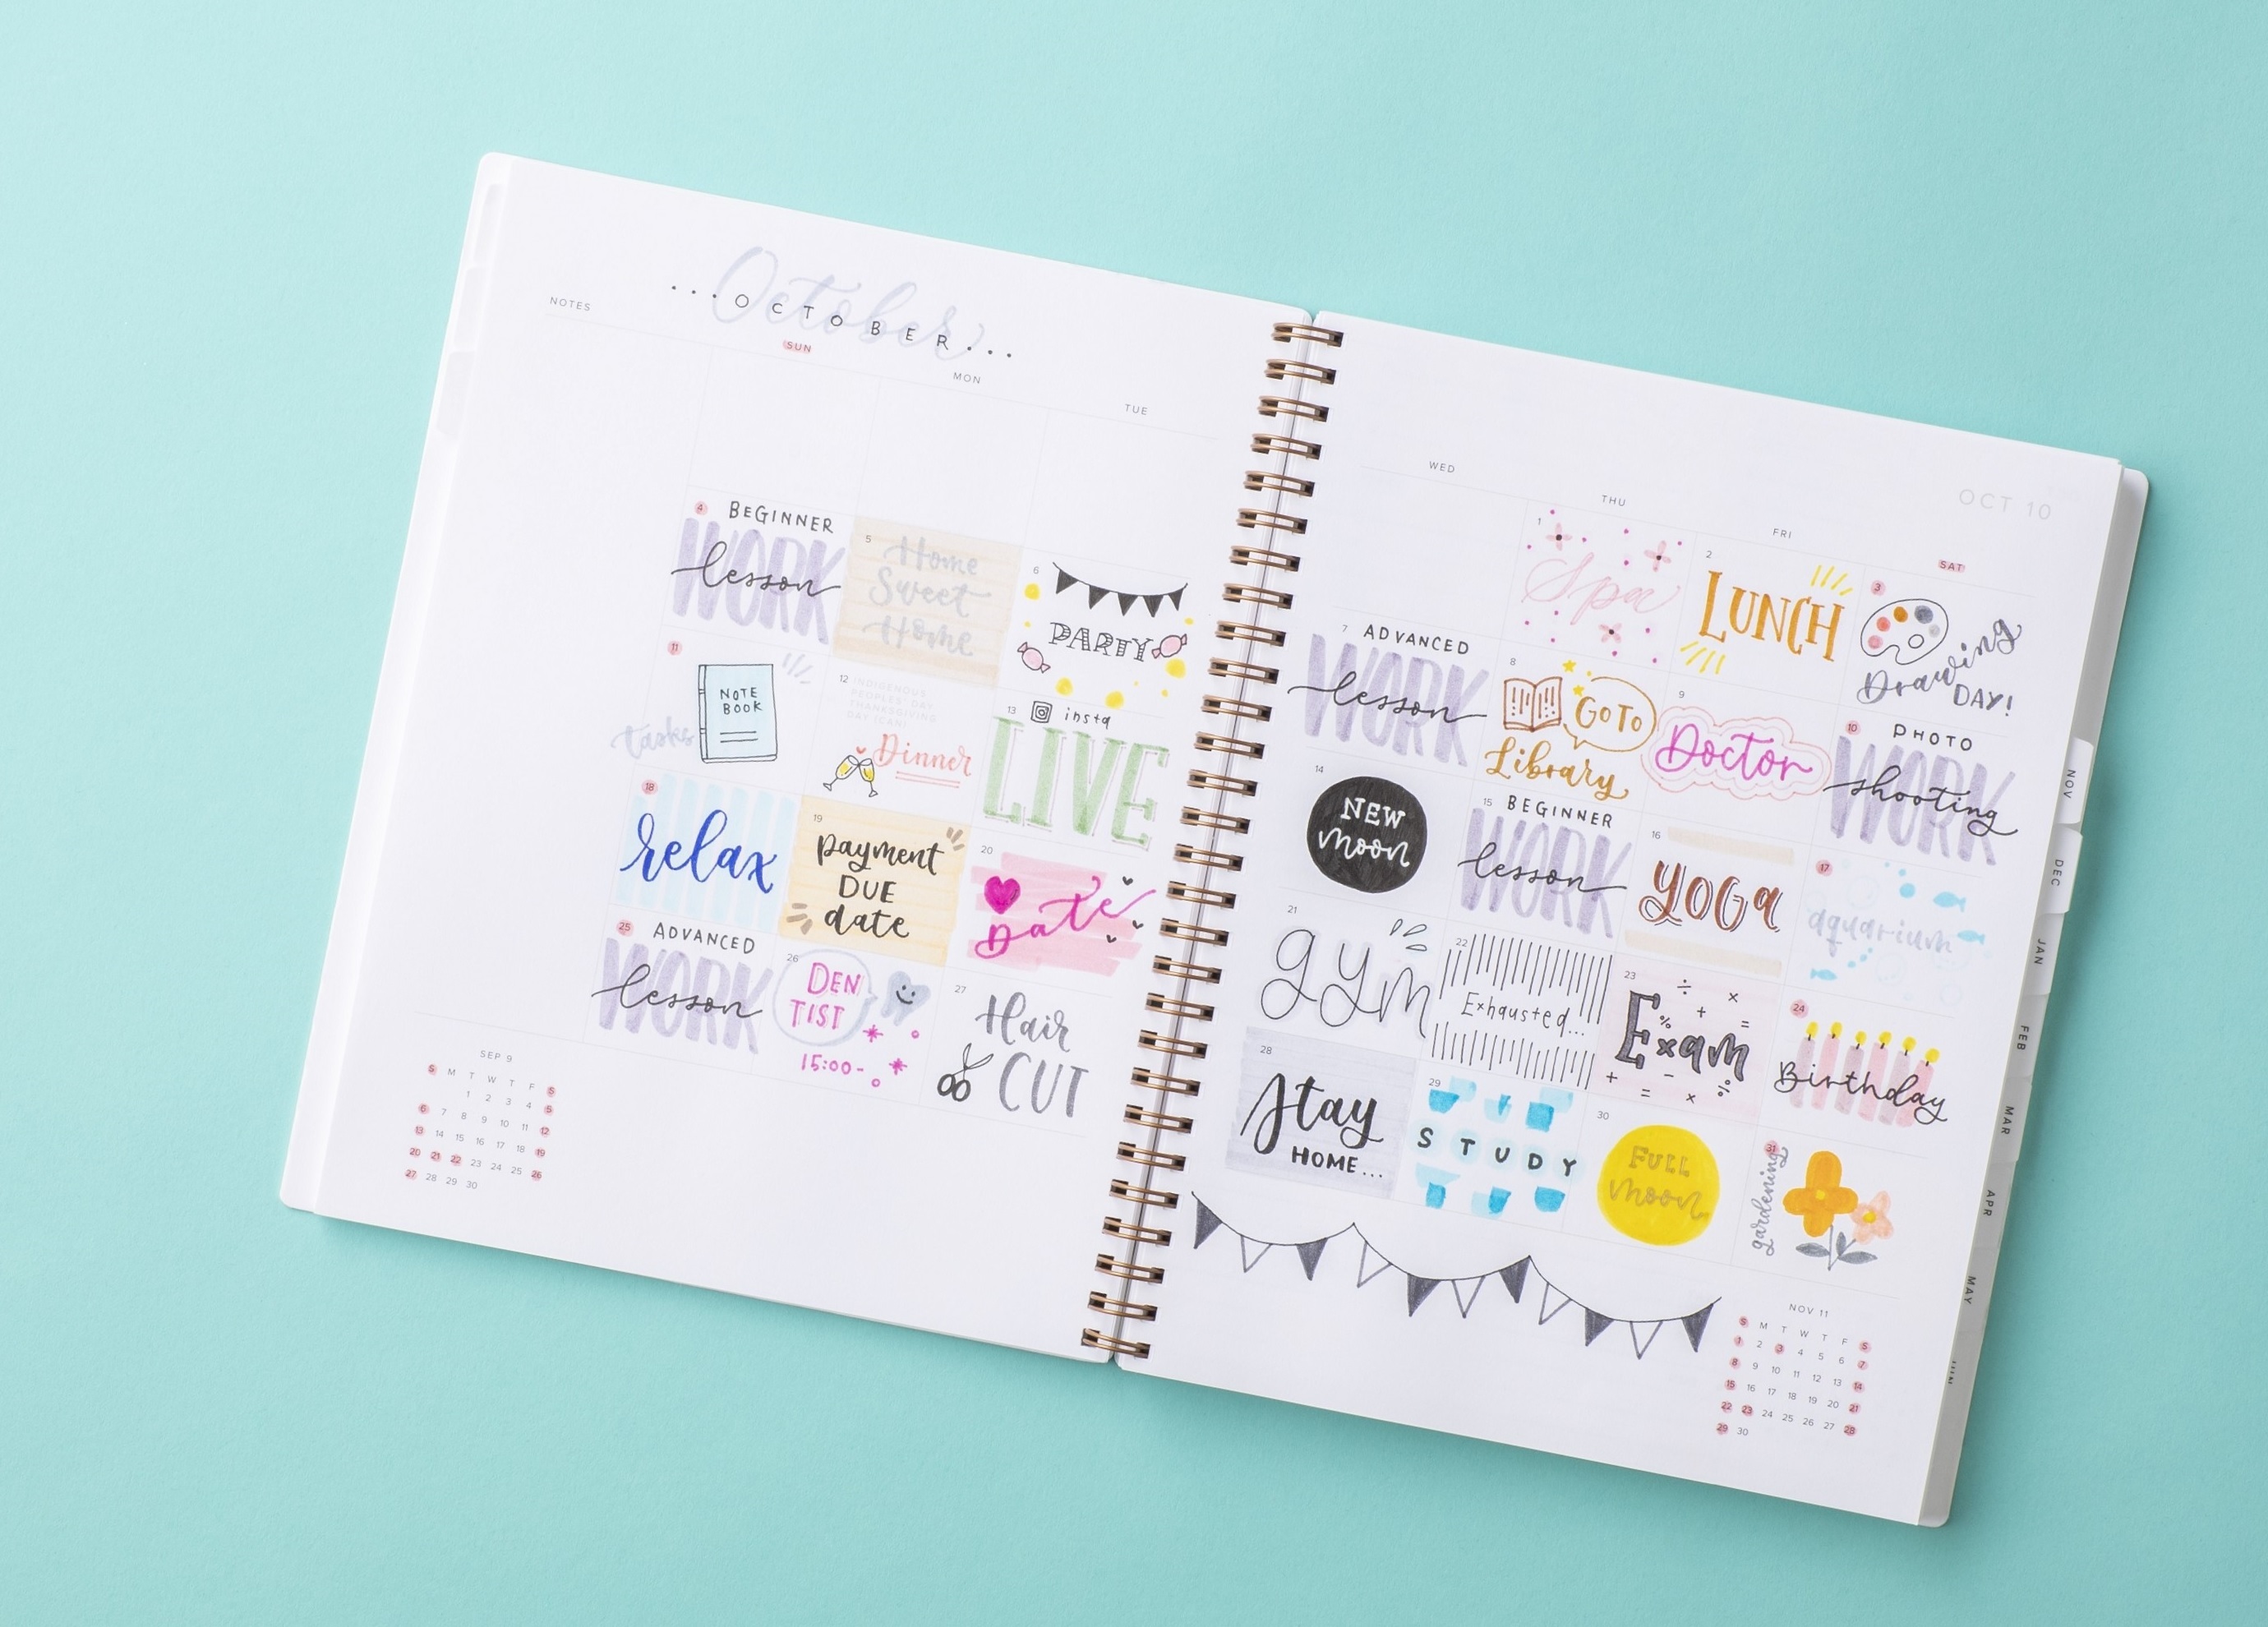 October
...OCTOBER...
NOTES
SUN
MON
TUE
4
BEGINNER
WORK
lesson
5
Home
Sweet
Home
6
PARTY
11
NOTE
BOOK
tasks
12
INDIGENOUS
PEOPLES' DAY
THANKSGIVING
DAY (CAN)
Dinner
13
insta
LIVE
18
relax
19
payment
DUE
date
20
Date
25
ADVANCED
WORK
lesson
26
DEN
TIST
15:00-
27
Hair
CUT
SEP 9
S M T W T F S
1 2 3 4 5
6 7 8 9 10 11 12
13 14 15 16 17 18 19
20 21 22 23 24 25 26
27 28 29 30
OCT 10
WED
THU
FRI
SAT
1
Spa
2
LUNCH
3
Drawing
DAY!
7
ADVANCED
WORK
lesson
8
GO TO
Library
9
Doctor
10
PHOTO
WORK
shooting
14
NEW
moon
15
BEGINNER
WORK
lesson
16
YOGa
17
aquarium
21
gym
22
Exhausted...
23
Exam
24
Birthday
28
Stay
HOME...
29
STUDY
30
FULL
moon
31
gardening
NOV 11
S M T W T F S
1 2 3 4 5 6 7
8 9 10 11 12 13 14
15 16 17 18 19 20 21
22 23 24 25 26 27 28
29 30
NOV
DEC
JAN
FEB
MAR
APR
MAY